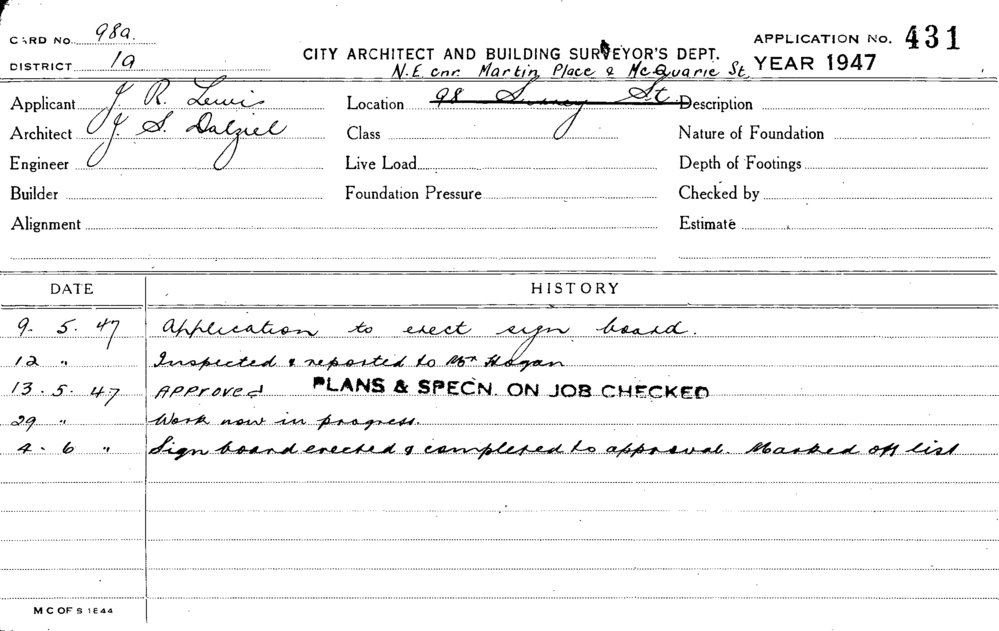 CARD No. 98a.
CITY ARCHITECT AND BUILDING SURVEYOR'S DEPT.
APPLICATION No. 431
DISTRICT 1a
N.E. cnr. Martin Place & McQuarie St.
YEAR 1947
Applicant J. R. Lewis
Location 98 Surrey St.
Description
Architect J. S. Dalziel
Class
Nature of Foundation
Engineer
Live Load
Depth of Footings
Builder
Foundation Pressure
Checked by
Alignment
Estimate
DATE HISTORY
9. 5. 47 Application to erect sign board.
12 " Inspected & reported to Mr Hogan
13. 5. 47 Approved PLANS & SPECN. ON JOB CHECKED
29 " Work now in progress.
4. 6 " Sign board erected & completed to approval. Marked off list
M C OF S 1E44